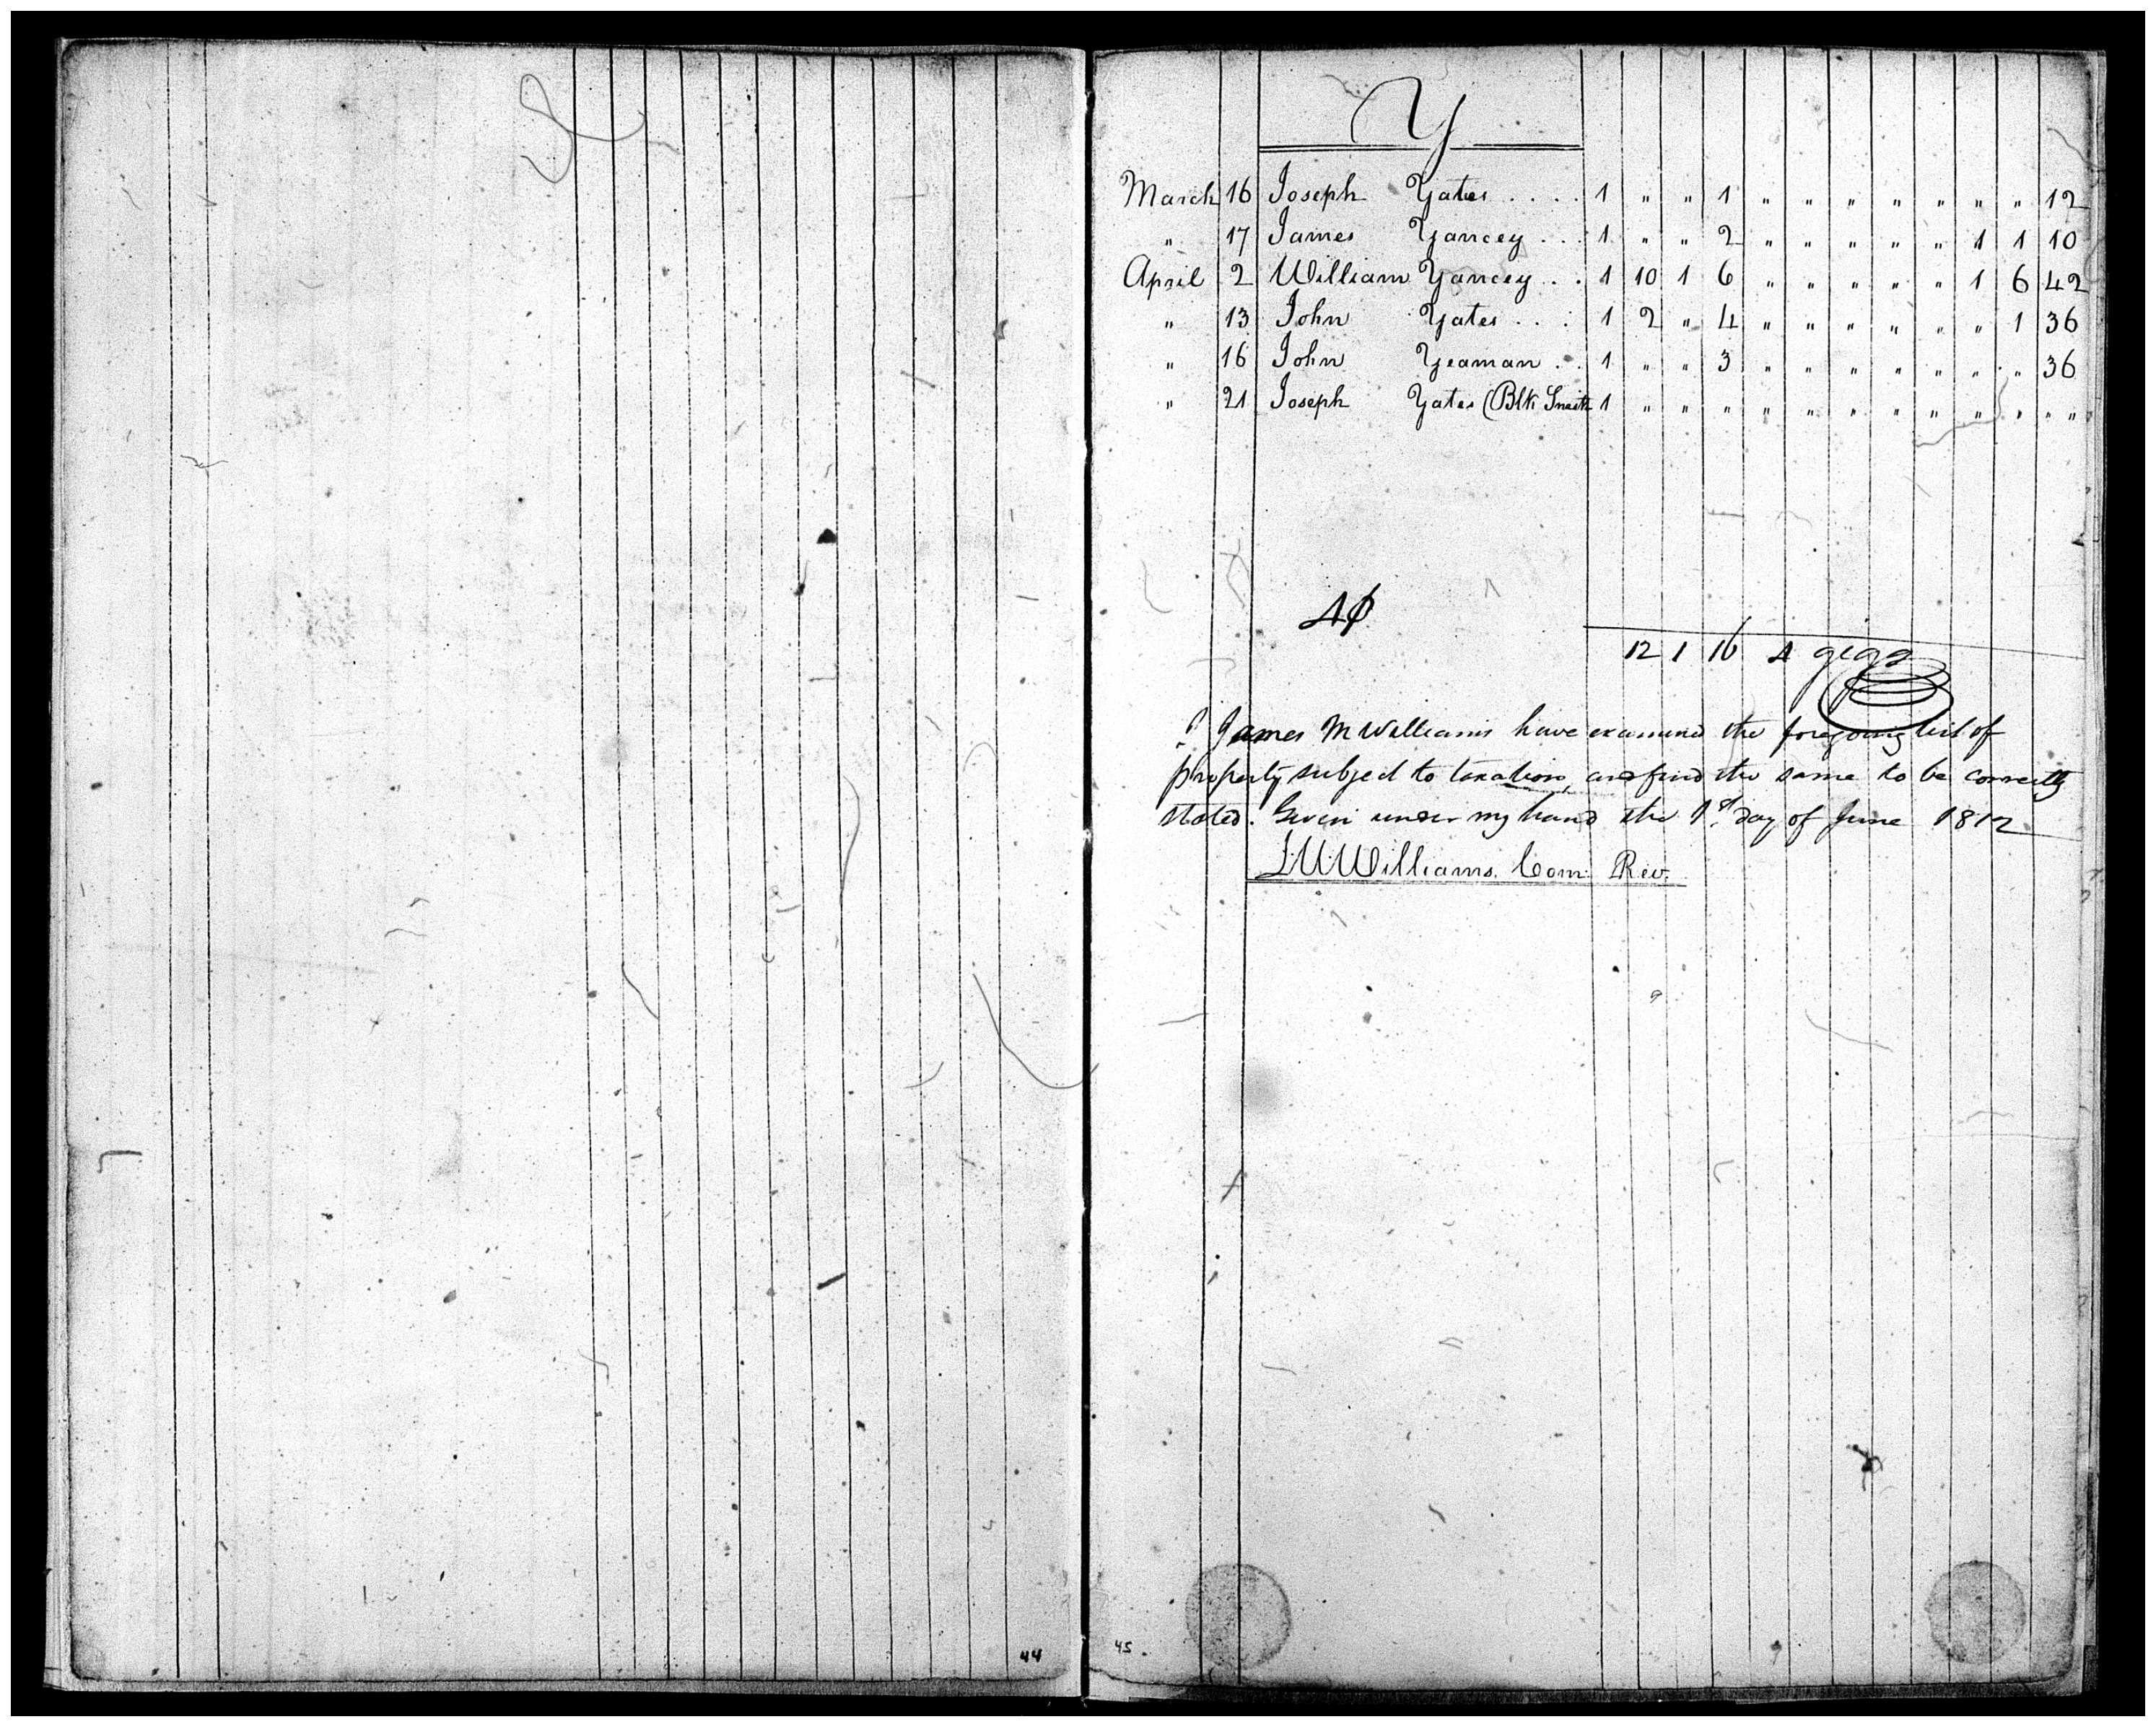 Y
March 16 Joseph Yates . . . . 1 " " 1 " " " " " " " 12
" 17 James Yancey . . . 1 " " 2 " " " " " 1 1 10
April 2 William Yancey . . 1 10 1 6 " " " " " 1 6 42
" 13 John Yates . . . 1 2 " 4 " " " " " " 1 36
" 16 John Yeaman . . 1 " " 3 " " " " " " " 36
" 21 Joseph Yates (Blk Smith 1 " " " " " " " " " " " "
12 1 16 gigs
I James M Williams have examined the foregoing list of
property subject to taxation, and find the same to be correctly
stated. Given under my hand the 1st day of June 1812
J.M.Williams. Com: Rev.
44
45